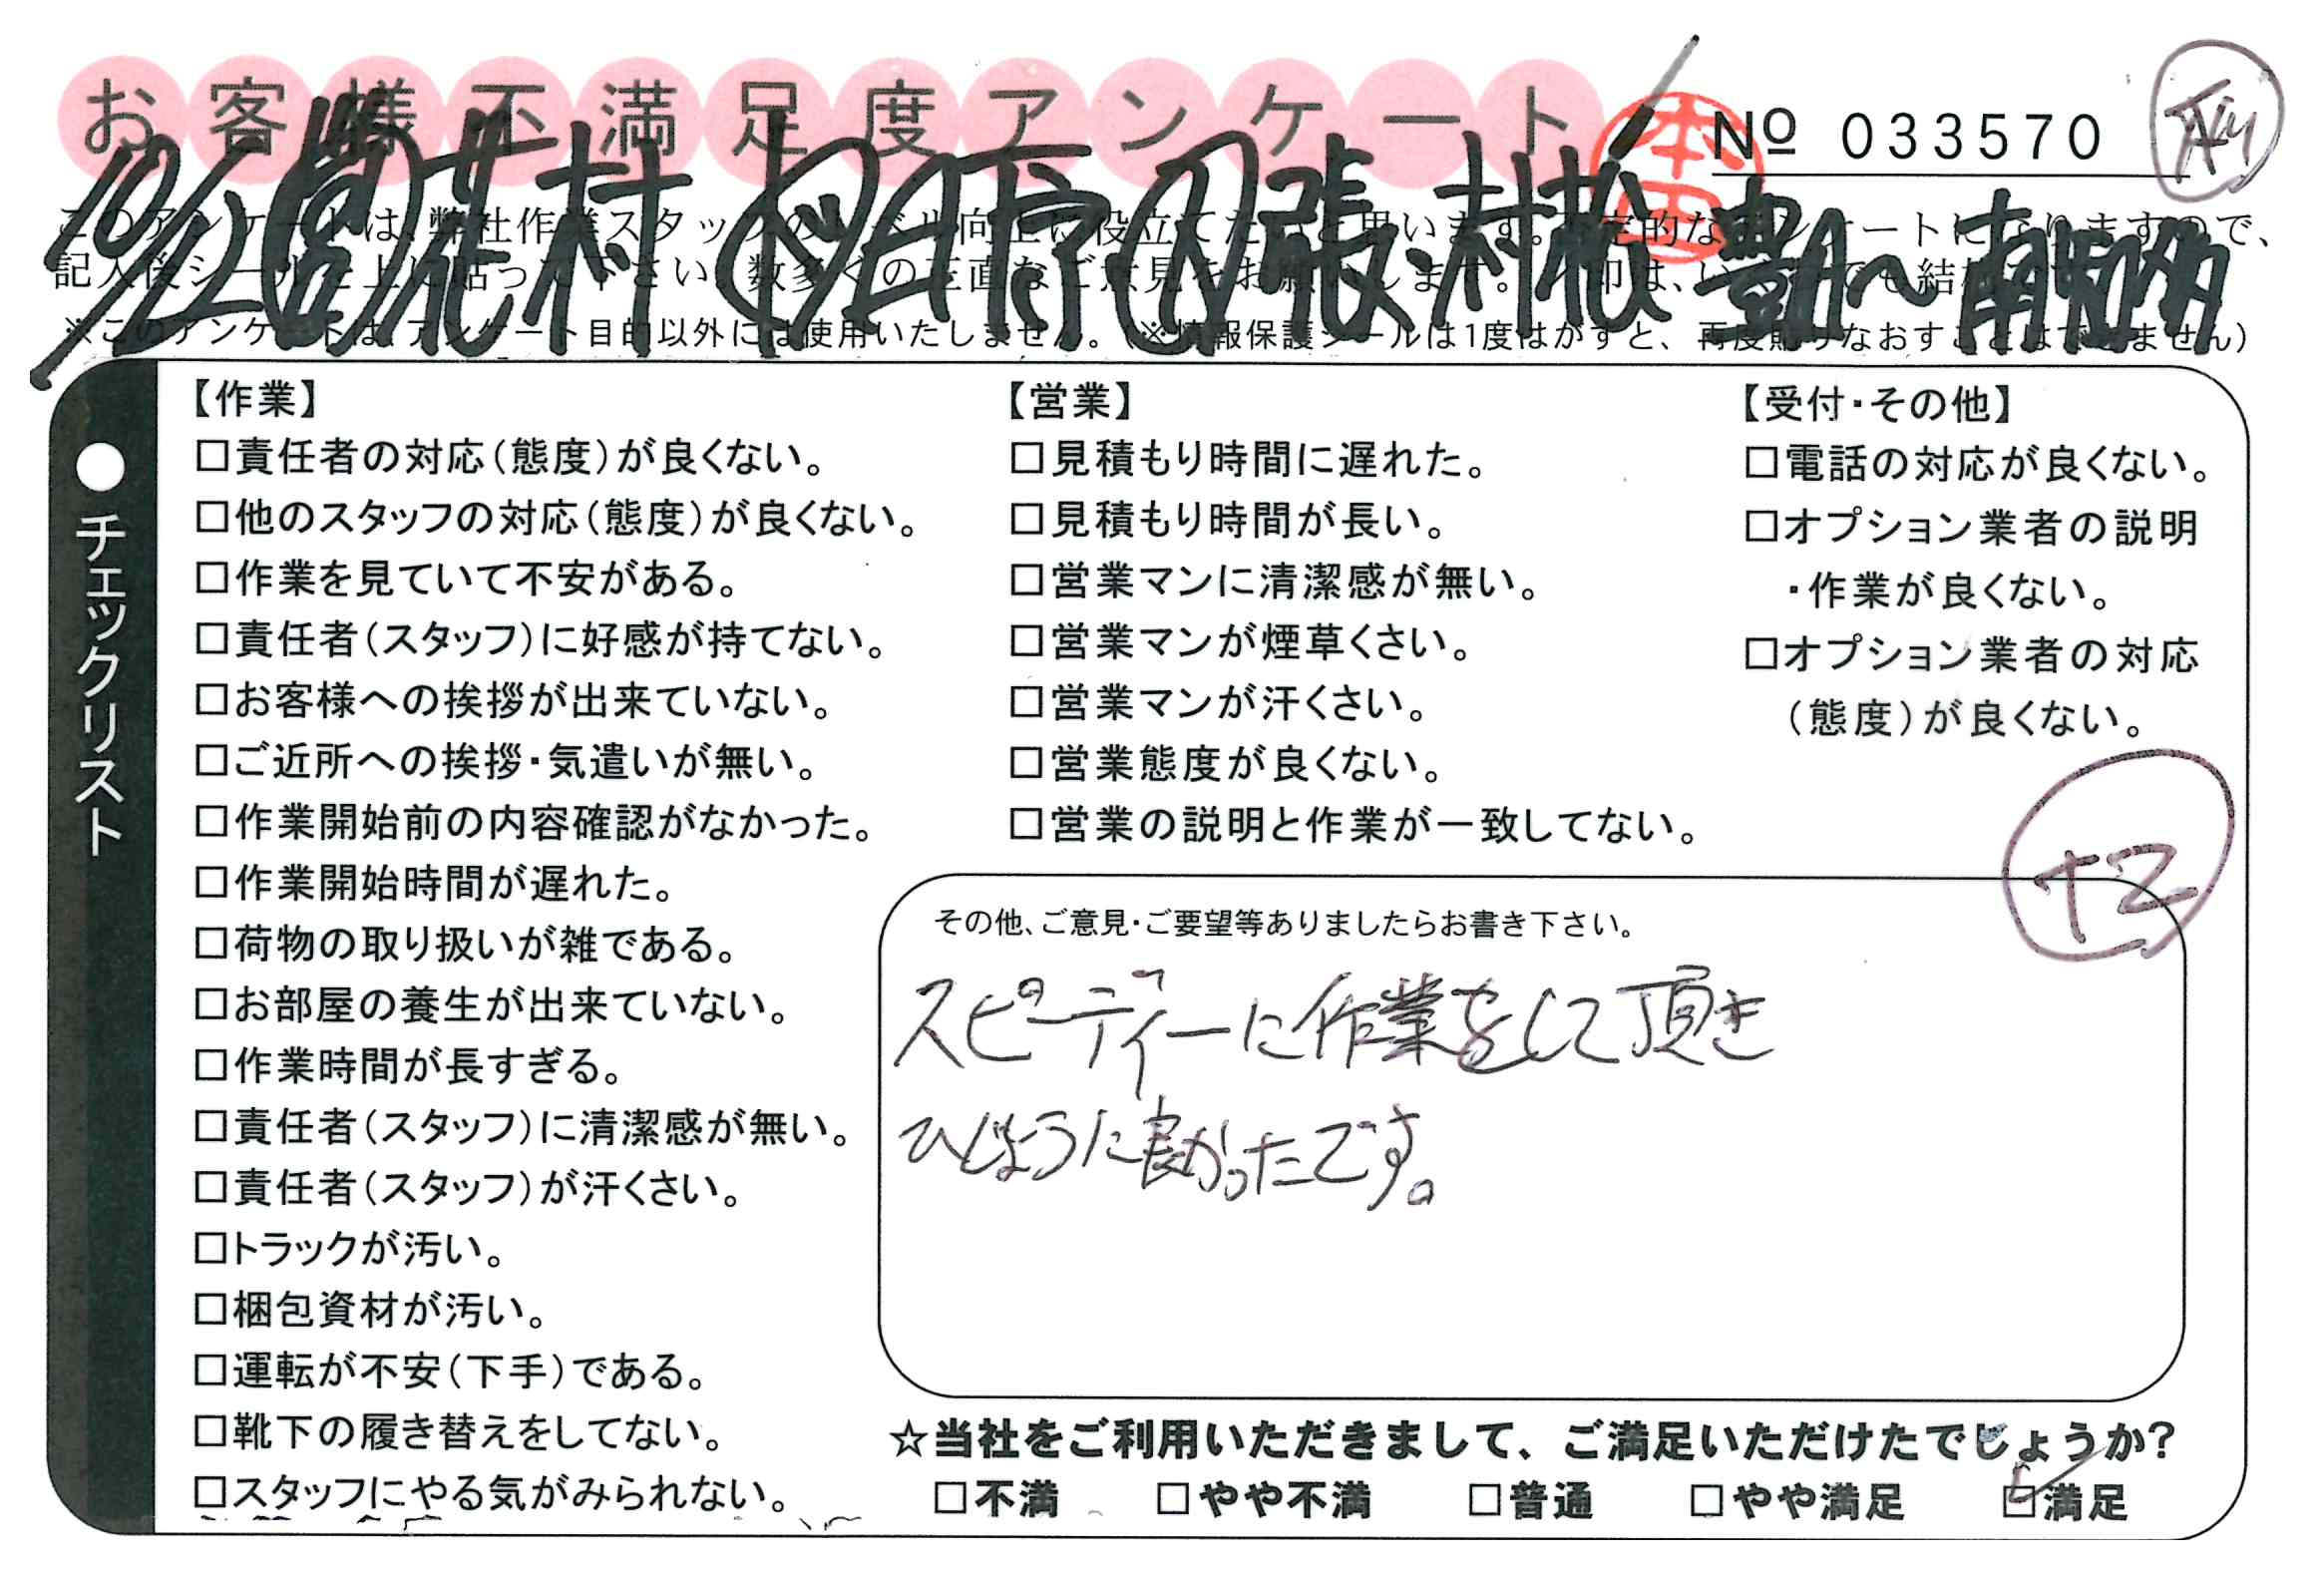 お客様不満足度アンケート
本田
№ 033570
このアンケートは、弊社作業スタッフのレベル向上に役立てたいと思います。
記入後シールを上に貼って下さい。数多くの正直なご意見をお願いします。
※このアンケートは、アンケート目的以外には使用いたしません。(※情報保護シールは1度はがすと、再度貼りなおすことはできません)
10/2 花村 松 豊 南知多
●チェックリスト
【作業】
□責任者の対応(態度)が良くない。
□他のスタッフの対応(態度)が良くない。
□作業を見ていて不安がある。
□責任者(スタッフ)に好感が持てない。
□お客様への挨拶が出来ていない。
□ご近所への挨拶・気遣いが無い。
□作業開始前の内容確認がなかった。
□作業開始時間が遅れた。
□荷物の取り扱いが雑である。
□お部屋の養生が出来ていない。
□作業時間が長すぎる。
□責任者(スタッフ)に清潔感が無い。
□責任者(スタッフ)が汗くさい。
□トラックが汚い。
□梱包資材が汚い。
□運転が不安(下手)である。
□靴下の履き替えをしてない。
□スタッフにやる気がみられない。
【営業】
□見積もり時間に遅れた。
□見積もり時間が長い。
□営業マンに清潔感が無い。
□営業マンが煙草くさい。
□営業マンが汗くさい。
□営業態度が良くない。
□営業の説明と作業が一致してない。
【受付・その他】
□電話の対応が良くない。
□オプション業者の説明
・作業が良くない。
□オプション業者の対応
(態度)が良くない。
+2
その他、ご意見・ご要望等ありましたらお書き下さい。
スピーディーに作業をして頂き
ひじょうに良かったです。
☆当社をご利用いただきまして、ご満足いただけたでしょうか?
□不満 □やや不満 □普通 □やや満足 ☑満足